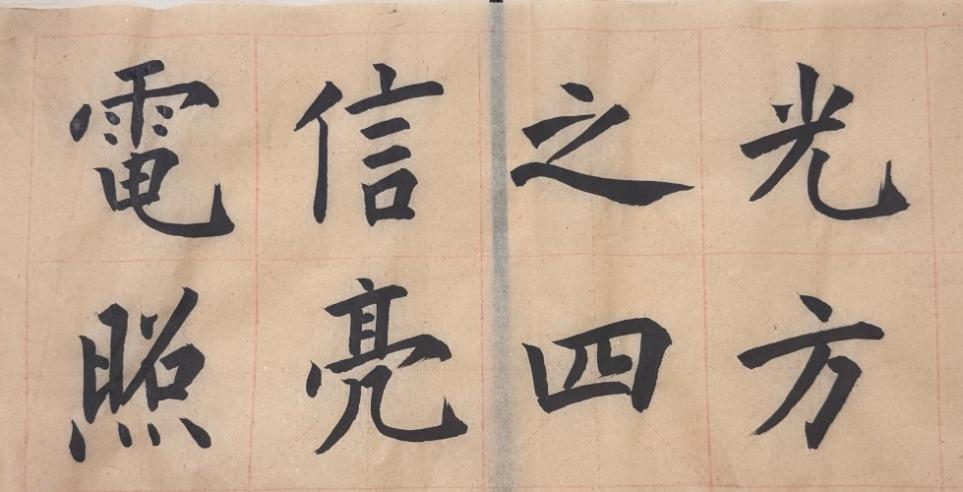 電信之光
照亮四方